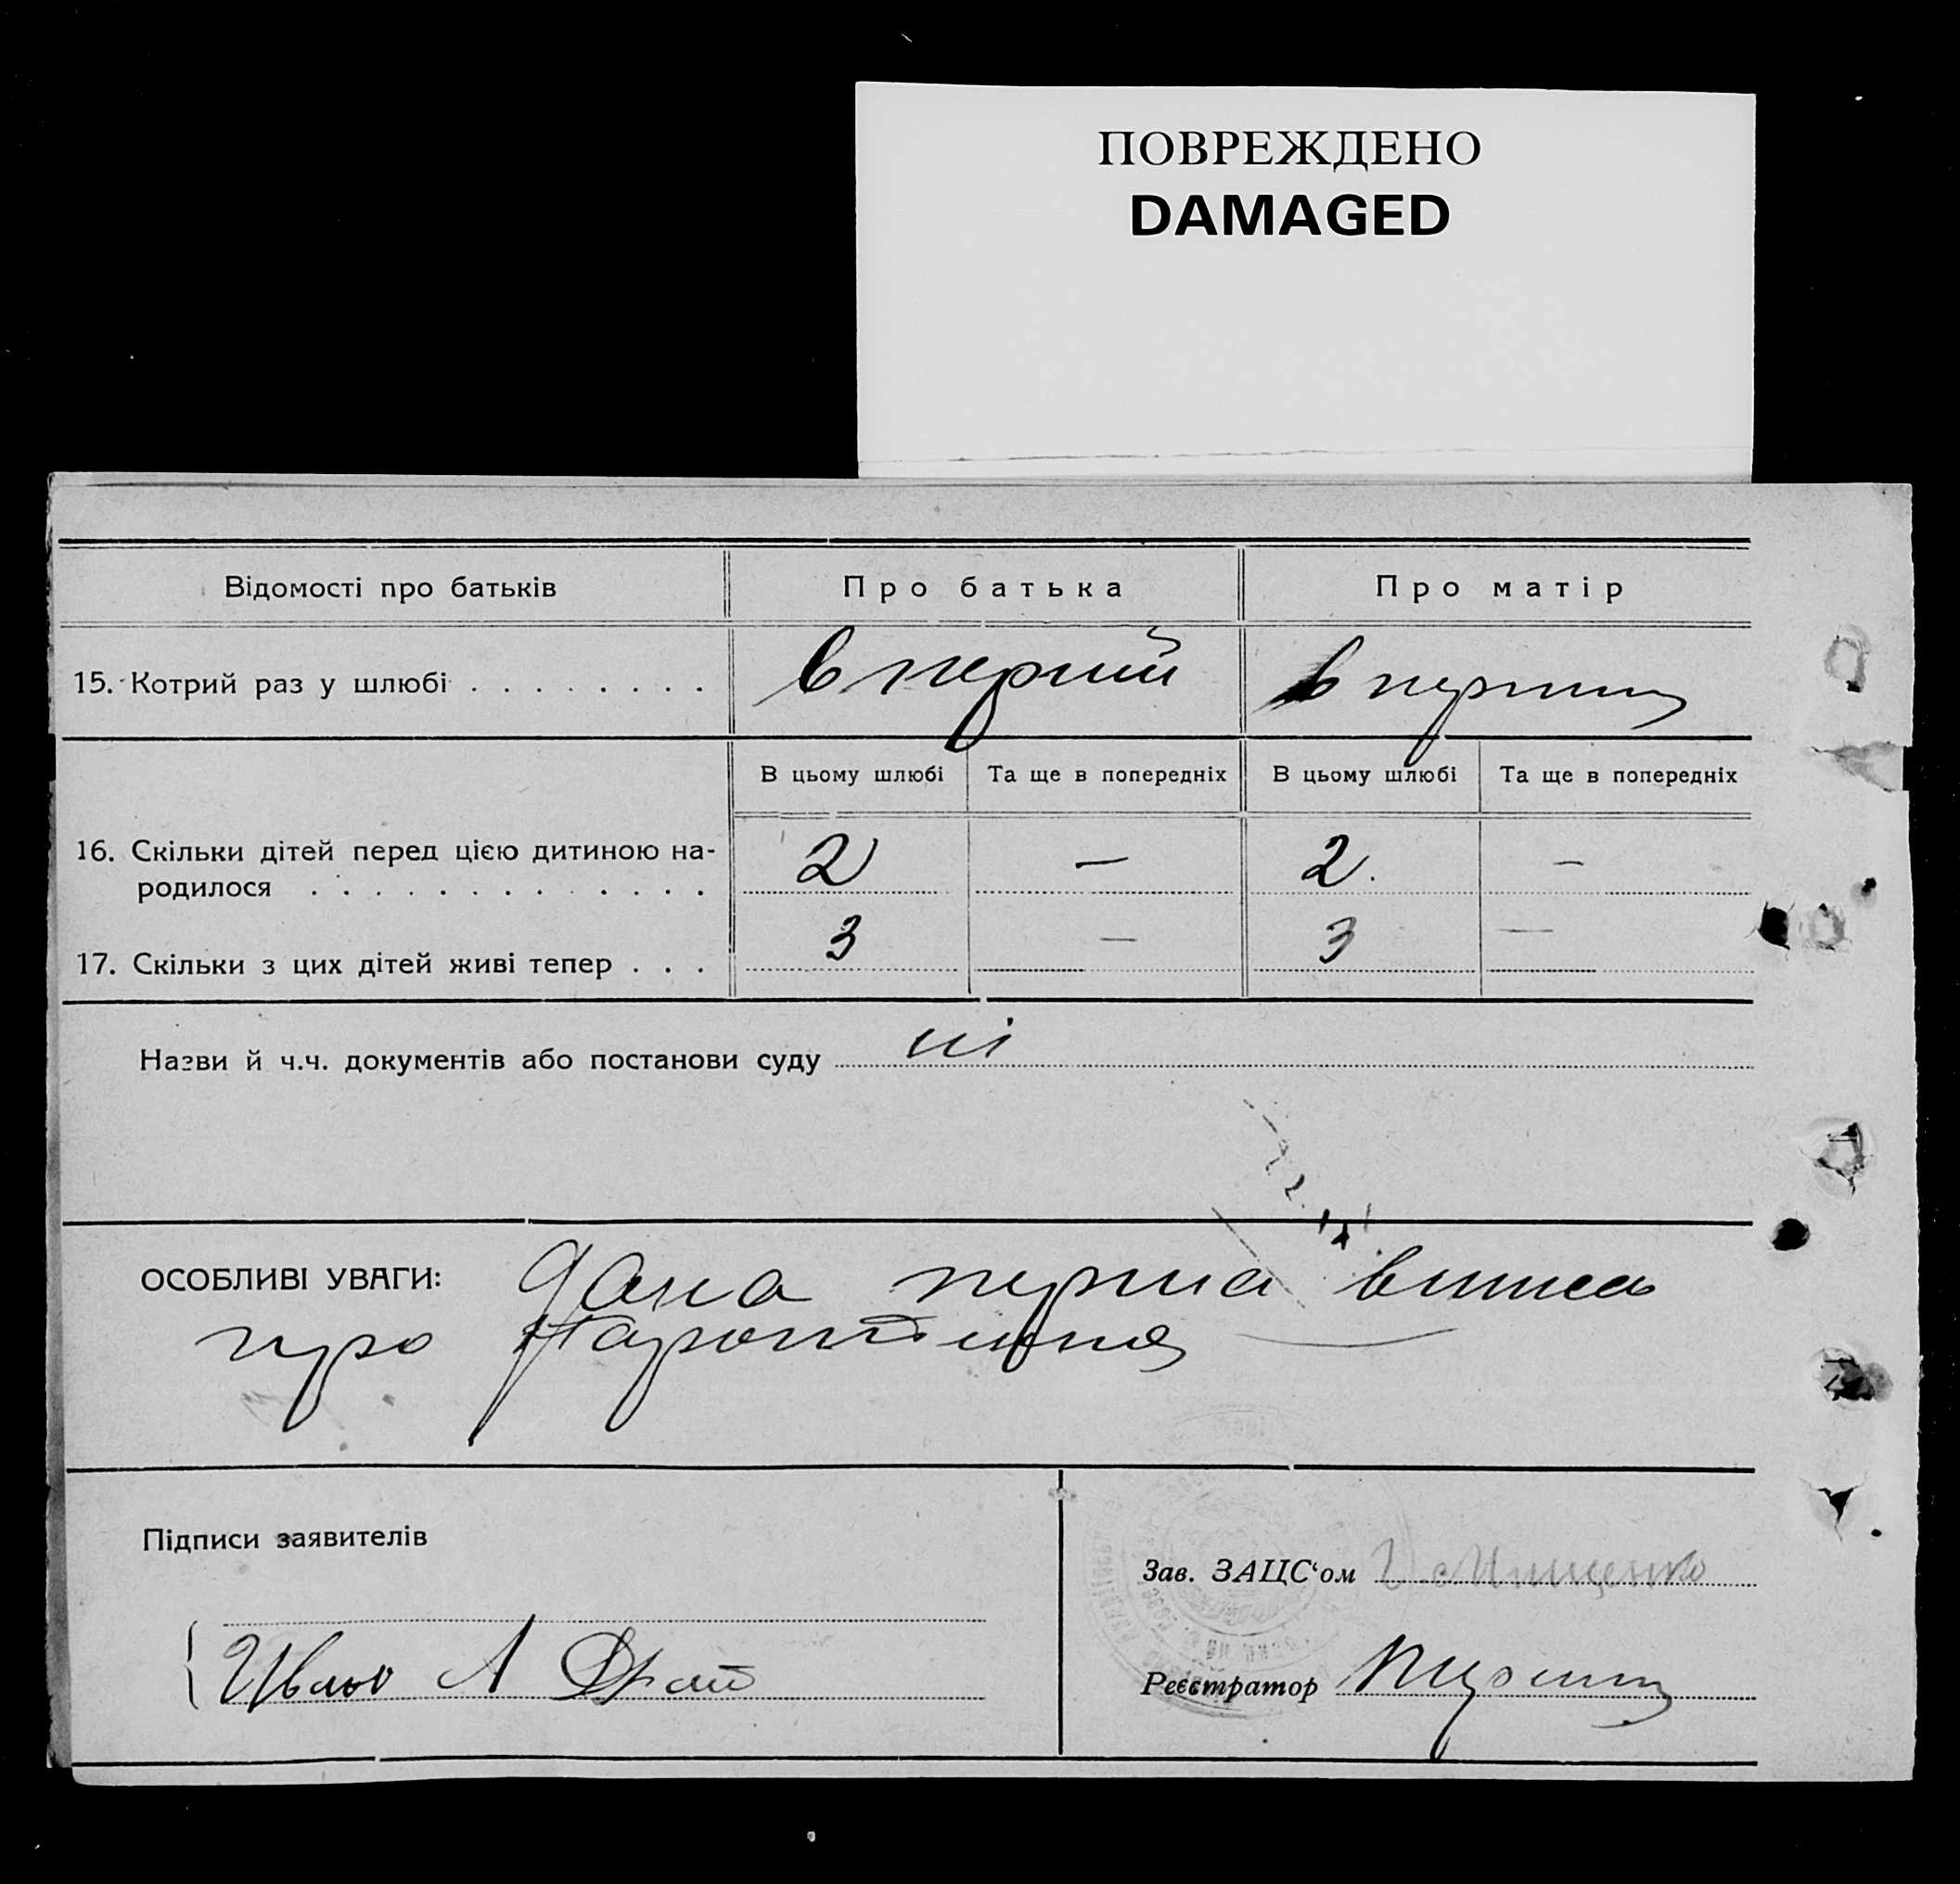 ПОВРЕЖДЕНО
DAMAGED
Відомості про батьків Про батька Про матір
15. Котрий раз у шлюбі . . . . . . . . в перший в перший
В цьому шлюбі Та ще в попередніх В цьому шлюбі Та ще в попередніх
16. Скільки дітей перед цією дитиною на- 2 — 2. —
родилося . . . . . . . . . . . . .
17. Скільки з цих дітей живі тепер . . . 3 — 3 —
Назви й ч.ч. документів або постанови суду ні
ОСОБЛИВІ УВАГИ: Дана перша випись
про народження
Підписи заявителів
Зав. ЗАЦС‘ом Г Мищенко
А
Реєстратор